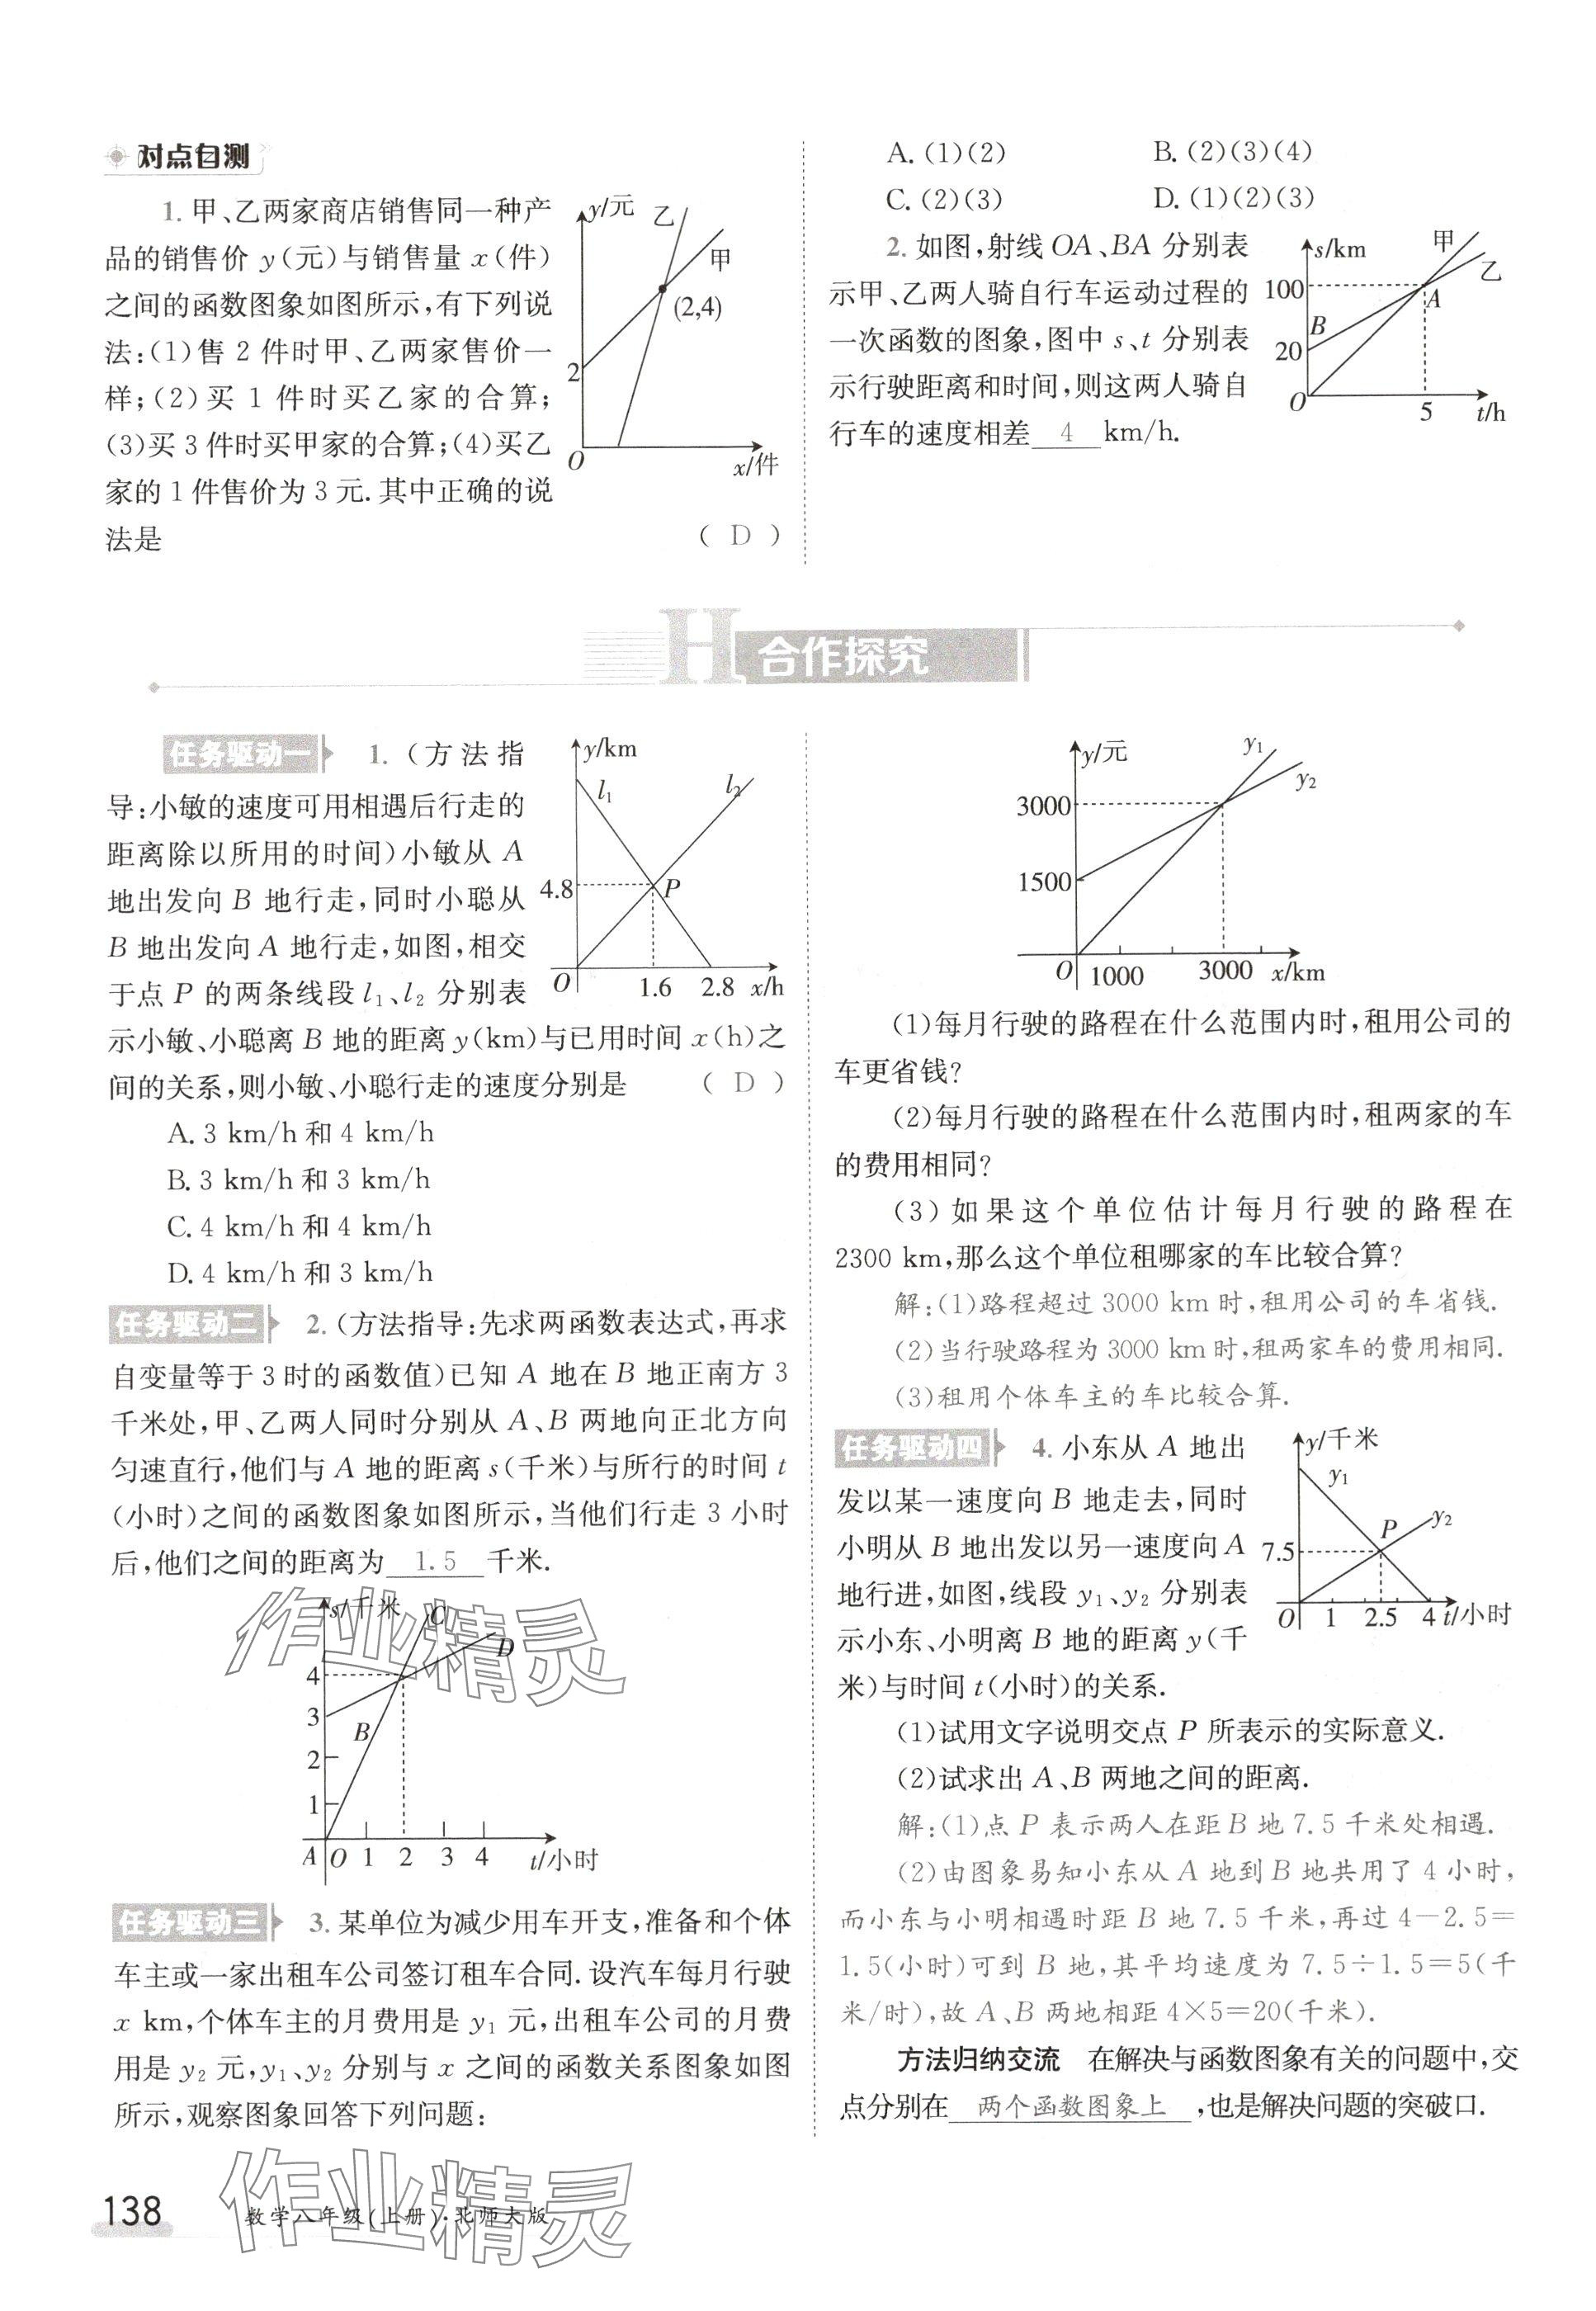 对点自测
1. 甲、乙两家商店销售同一种产
品的销售价 y(元)与销售量 x(件)
之间的函数图象如图所示,有下列说
法:(1)售 2 件时甲、乙两家售价一
样;(2)买 1 件时买乙家的合算;
(3)买 3 件时买甲家的合算;(4)买乙
家的 1 件售价为 3 元. 其中正确的说
法是 ( D )
y/元
乙
甲
(2,4)
2
O
x/件
A. (1)(2) B. (2)(3)(4)
C. (2)(3) D. (1)(2)(3)
2. 如图,射线 OA、BA 分别表
示甲、乙两人骑自行车运动过程的
一次函数的图象,图中 s、t 分别表
示行驶距离和时间,则这两人骑自
行车的速度相差 4 km/h.
s/km
甲
乙
100
A
B
20
O
5
t/h
H 合作探究
任务驱动一 1. (方法指
导:小敏的速度可用相遇后行走的
距离除以所用的时间)小敏从 A
地出发向 B 地行走,同时小聪从
B 地出发向 A 地行走,如图,相交
于点 P 的两条线段 l₁、l₂ 分别表
示小敏、小聪离 B 地的距离 y(km)与已用时间 x(h)之
间的关系,则小敏、小聪行走的速度分别是 ( D )
y/km
l₁
l₂
4.8
P
O
1.6 2.8 x/h
A. 3 km/h 和 4 km/h
B. 3 km/h 和 3 km/h
C. 4 km/h 和 4 km/h
D. 4 km/h 和 3 km/h
任务驱动二 2. (方法指导:先求两函数表达式,再求
自变量等于 3 时的函数值)已知 A 地在 B 地正南方 3
千米处,甲、乙两人同时分别从 A、B 两地向正北方向
匀速直行,他们与 A 地的距离 s(千米)与所行的时间 t
(小时)之间的函数图象如图所示,当他们行走 3 小时
后,他们之间的距离为 1.5 千米.
s/千米
C
D
4
3
B
2
1
A O 1 2 3 4 t/小时
作业精灵
任务驱动三 3. 某单位为减少用车开支,准备和个体
车主或一家出租车公司签订租车合同. 设汽车每月行驶
x km,个体车主的月费用是 y₁ 元,出租车公司的月费
用是 y₂ 元,y₁、y₂ 分别与 x 之间的函数关系图象如图
所示,观察图象回答下列问题:
y/元
y₁
y₂
3000
1500
O 1000 3000 x/km
(1)每月行驶的路程在什么范围内时,租用公司的
车更省钱?
(2)每月行驶的路程在什么范围内时,租两家的车
的费用相同?
(3)如果这个单位估计每月行驶的路程在
2300 km,那么这个单位租哪家的车比较合算?
解:(1)路程超过 3000 km 时,租用公司的车省钱.
(2)当行驶路程为 3000 km 时,租两家车的费用相同.
(3)租用个体车主的车比较合算.
任务驱动四 4. 小东从 A 地出
发以某一速度向 B 地走去,同时
小明从 B 地出发以另一速度向 A
地行进,如图,线段 y₁、y₂ 分别表
示小东、小明离 B 地的距离 y(千
米)与时间 t(小时)的关系.
y/千米
y₁
P
y₂
7.5
O 1 2.5 4 t/小时
(1)试用文字说明交点 P 所表示的实际意义.
(2)试求出 A、B 两地之间的距离.
解:(1)点 P 表示两人在距 B 地 7.5 千米处相遇.
(2)由图象易知小东从 A 地到 B 地共用了 4 小时,
而小东与小明相遇时距 B 地 7.5 千米,再过 4－2.5＝
1.5(小时)可到 B 地,其平均速度为 7.5÷1.5＝5(千
米/时),故 A、B 两地相距 4×5＝20(千米).
方法归纳交流 在解决与函数图象有关的问题中,交
点分别在 两个函数图象上 ,也是解决问题的突破口.
138 数学八年级(上册)·北师大版
作业精灵